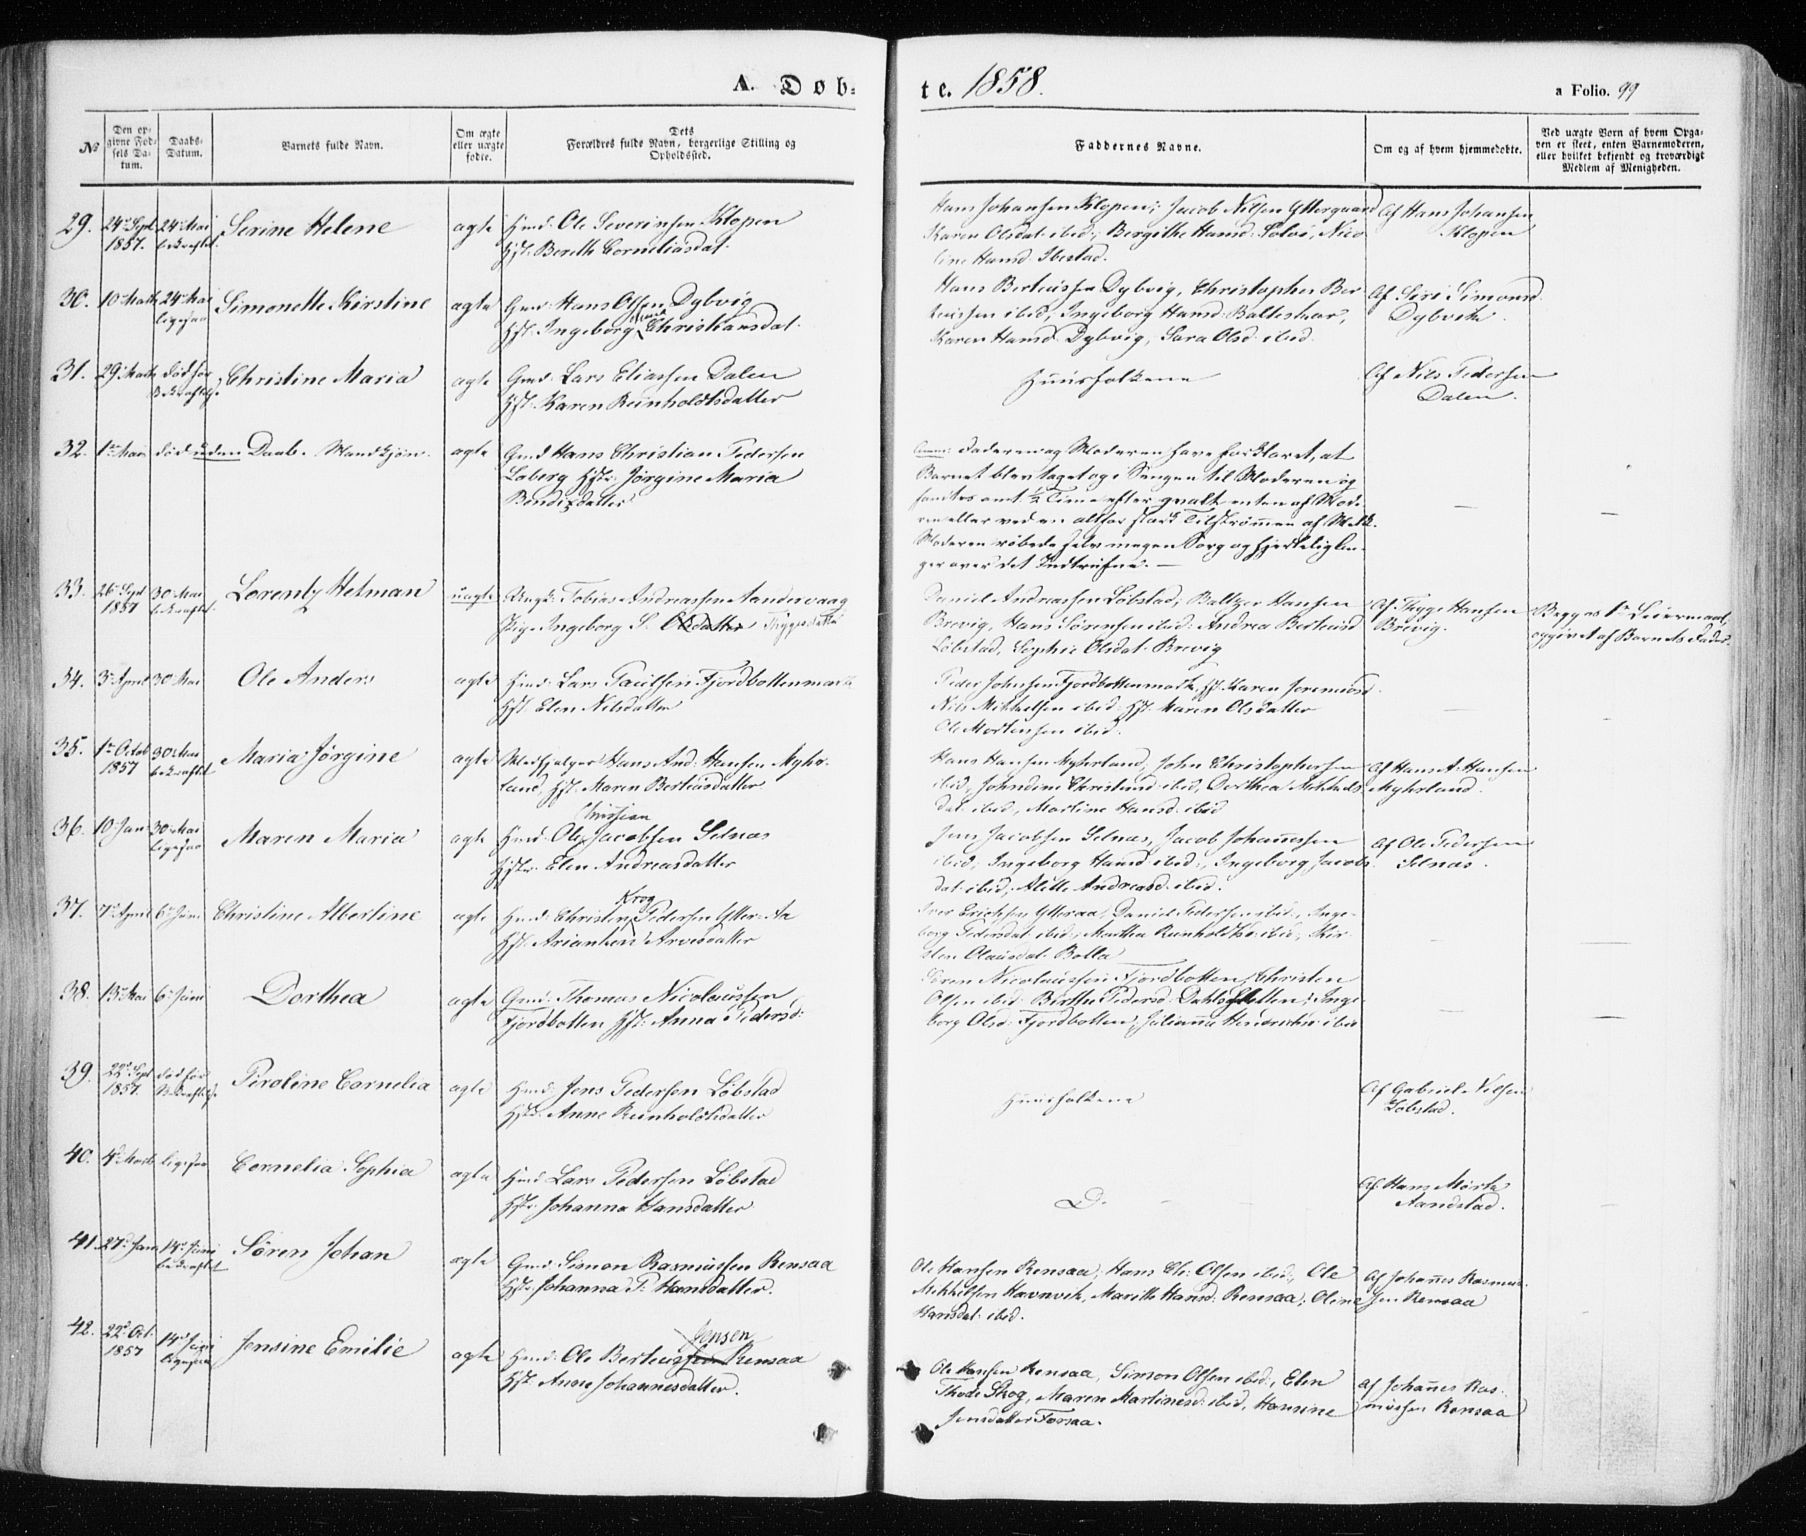 A. Døb-
te. 1858.
a Folio. 99
№
Den op-
givne Fød-
sels Da-
tum.
Daabs-
Datum.
Barnets fulde Navn.
Om ægte
eller uægte
fødte.
Dets
Forældres fulde Navn, borgerlige Stilling og
Opholdssted.
Faddernes Navne.
Om og af hvem hjemmedøbte.
Ved uægte Børn af hvem Opga-
ven er skeet, enten Barnemoderen,
eller hvilket bekjendt og troværdigt
Medlem af Menigheden.
29. 24d Sept 1857. 24d Mai bekræftet Serine Helene ægte Hmd: Ole Severinsen Klopen
Hst: Bereth Corneliasdat.
Hans Johansen Klopen; Jacob Nilsen Yttergaard
Karen Olsdat ibid; Bergithe Hansd: Solvi, Nico
line Hansd. Ibestad.
Af Hans Johansen
Klopen
30. 10d Marts 24d Mai ligesaa Simonette Kirstine ægte Gmd: Hans Olsen Dybvig
Hst: Ingeborg Christiansdat.
Hans Berteussen Dybvig, Christopher Ber
teussen ibid, Ingeborg Hansd: Balteskar,
Karen Hansd: Dybvig, Sara Olsd. ibid.
Af Siri Simonsd.
Dybvik.
31. 29d Marts død før Bekræftelse Christine Maria ægte Gmd: Lars Eliassen Dalen
Hst: Karen Reinholdtsdatter
Huusfolkene
Af Nils Pedersen
Dalen.
32. 1ste Mai død uden Daab. Mandkjøn. ægte Gmd Hans Christian Pedersen
Loberg Hst: Jørgine Maria
Bendixdatter
Anm: Faderen og Moderen have forklaret, at
Barnet blev taget op i Sengen til Moderen og
fandtes omt ½ Time efter qvalt enten af Mode
ren eller ved en altfor stærk Tilstrømmen af Melk.
Moderen røbede selv megen Sorg og hjerteligben
ger over det Indtrufne. —
33. 26d Sept 1857 30 Mai bekræftet Lorentz Hetman uægte Ungk: Tobias Andreassen Aandervaag
Pige Ingeborg S. Olsdatter Thygesdatter
Daniel Andreassen Løbstad; Baltzer Hansen
Brevig, Hans Sørensen ibid: Andrea Berteusd
Løbstad, Sophie Olsdat: Brevig
Af Tygge Hansen
Brevig.
Begges 1ste Leiermaal,
opgivet af Barnets Fader
34. 3d April 30 Mai Ole Anders ægte Hmd: Lars Paulsen Fjordbottenmark
Hst Elen Nilsdatter
Peder Johnsen Fjordbottenmark, Hst. Karen Jeremiasd
Nils Mikkelsen ibid Hst. Maren Olsdatter
Ole Mortensen ibid.
35. 1ste Octob 1857 30 Mai bekræftet Maria Jørgine ægte Medhjelper Hans And: Hansen Myhr-
land, Hst. Maren Berteusdatter
Hans Hansen Myhrland, John Christophersen
ibid, Christensd ibid, Dorthea Mikkels
dat: ibid, Martine Hansd: ibid
Af Hans A. Hansen
Myhrland.
36. 10 Jan 30 Mai ligesaa Maren Maria ægte Hmd: Ole Christian Jacobsen Selnæs
Hst: Elen Andreasdatter
Jens Jacobsen Selnæs, Jacob Johannessen
ibid; Ingeborg Hansd ibid; Ingeborg Jacobs
dat: ibid; Andreasd. ibid.
Af Ole Pedersen
Selnæs.
37. 7d April 6d Juni Christine Albertine ægte Hmd: Christen Krog Pedersen Ytter-Aa
Hst. Arvesdatter
Iver Erichsen Ytteraa; Daniel Pedersen ibid., Inge-
borg Pedersdat ibid, Martha Reinholdtsd ibid;
Clausdat. Bolla
38. 13d Mai 6d Juni Dorthea ægte Gmd: Thomas Nicolaussen
Fjordbotten Hst: Anna Pedersd:
Søren Nicolaussen Fjordbotten, Christen
Olsen ibid: Pedersd: ; Inge-
borg Olsd: Fjordbotten; Julianna ibid
39. 22d Sept 1857. død før Bekræftelse Peroline Cornelia ægte Hmd: Jens Pedersen Løbstad
Hst: Anne Reinholdtsdatter
Huusfolkene
Af Gabriel Nilsen
Løbstad.
40. 4d Marts ligesaa Cornelia Sophia ægte Hmd: Lars Pedersen Løbstad
Hst: Johanna Hansdatter
D.
Af Hans Mørk
Aandstad.
41. 27d Jan 14d Juni bekræftet Søren Johan ægte Gmd: Simon Rasmussen Rensaa
Hst: Johanna P. Hansdatter.
Ole Hansen Rensaa; Hans Chr: Olsen ibid; Ole
Mikkelsen Havnvik, Marith Hansd: Rensaa; Oline
Hansdat: ibid.
Af Johannes Rasmus-
sen Rensaa
42. 22d Oct. 1857 14d Juni ligesaa Jensine Emilie ægte Hmd: Ole Berteussen Jensen Rensaa
Hst. Anne Johannesdatter.
Ole Hansen Rensaa, Simon Olsen ibid, Elen
Thode Skog, Maren Martinesd: ibid, Hansine
Jensdatter Forsaa.
af Johannes Ras-
mussen Rensaa